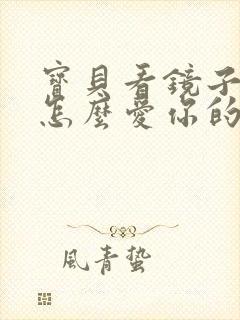 寶貝看鏡子
怎麼愛你的
風青蟄